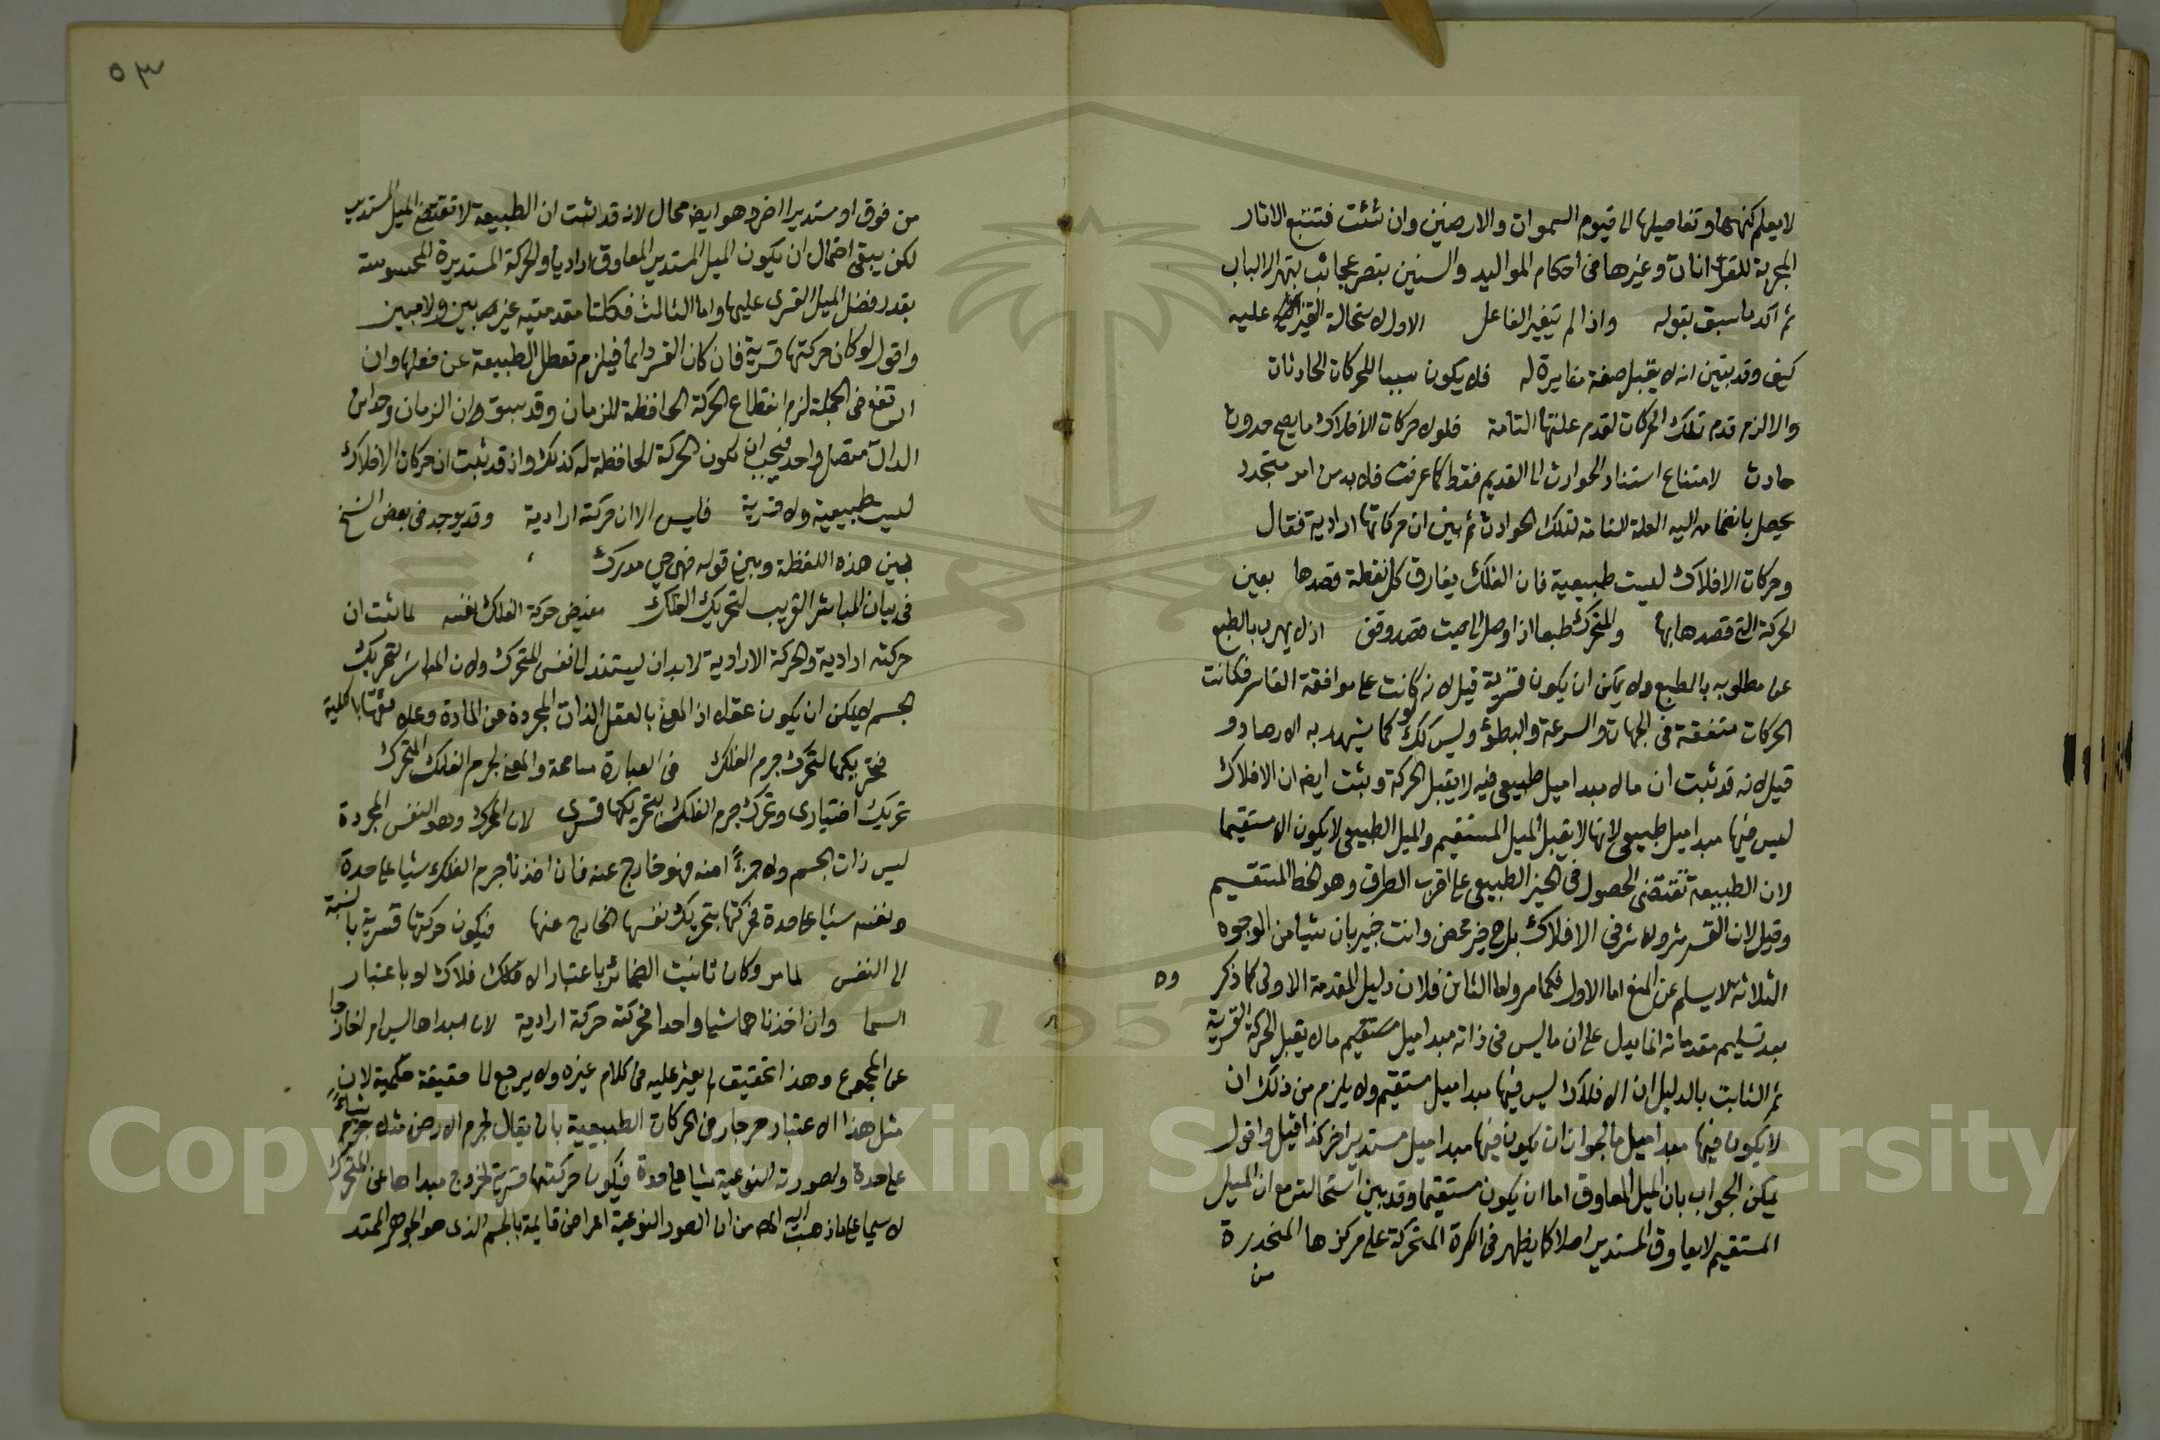 لا يعلم كنهها وتفاصيلها الا قيوم السموات والارضين وان شئت فتتبع الاثار
المجربة للقرانات وغيرها في احكام المواليد والسنين بتصر عجائب بتهر الالباب
ثم اكد ما سبق بقوله واذا لم يتغير الفاعل الاول لاستحالة التغير عليه
كيف وقد تبين انه لا يقبل صفة مغايرة له فلا يكون سببا للحركات الحادثات
والا لزم قدم تلك الحركات لقدم علتها التامة فلولا حركات الافلاك ما يصح حدوث
حادث لامتناع استناد الحوادث الى القديم فقط كما عرفت فلا بد من امر متجدد
يحصل بانضمامه اليه العلة التامة لتلك الحوادث ثم بين ان حركاتها ارادية فقال
وحركات الافلاك ليست طبيعية فان الفلك يفارق كل نقطة قصدها بعين
الحركة التي قصدها بها والمتحرك طبعا اذا وصل الى حيث قصد وقف اذ لا يهرب بالطبع
عن مطلوبه بالطبع ولا يمكن ان يكون قسرية قيل لانه لو كانت على موافقة القاسر فكانت
الحركات متفقة في الجهات والسرعة والبطؤ وليس كك كما يشهد به الارصاد و
قيل لانه قد ثبت ان ما لا مبدا ميل طبيعي فيه لا يقبل الحركة وثبت ايضا ان الافلاك
ليس فيها مبدا ميل طبيعي لانها لا يقبل الميل المستقيم والميل الطبيعي لا يكون الا مستقيما
لان الطبيعة تقتضي الحصول في الحيز الطبيعي على اقرب الطرق وهو الخط المستقيم
وقيل لان القسر شر ولا شر في الافلاك بل هي خير محض وانت خبير بان شيا من الوجوه
الثلاثة لا يسلم عن المنع اما الاول فكما مر واما الثاني فلان دليل المقدمة الاولى كما ذكر وه
بعد تسليم مقدماته انما يدل على ان ما ليس في ذاته مبدا ميل مستقيم ما لا يقبل الحركة القسرية
ثم الثابت بالدليل ان الافلاك ليس فيها مبدا ميل مستقيم ولا يلزم من ذلك ان
لا يكون فيها مبدا ميل ما لجواز ان يكون فيها مبدا ميل مستدير اخر كذا قيل واقول
يمكن الجواب بان الميل المعاوق اما ان يكون مستقيما وقد بين استحالته مع ان الميل
المستقيم لا يعاوق المستدير اصلا كما يظهر في الكرة المتحركة على مركزها المنحدرة
من
٥٣
من فوق او مستديرا اخر وهو ايضا محال لانه قد ثبت ان الطبيعة لا تقتضي الميل المستدير
لكن يبقى احتمال ان يكون الميل المستدير المعاوق اراديا والحركة المستديرة المحسوسة
بقدر فضل الميل القسري عليها واما الثالث فكلتا مقدمتيه غير بين ولا مبين
واقول لو كان حركتها قسرية فان كان القسر دائما فيلزم تعطل الطبيعة عن فعلها وان
ارتفع في الجملة لزم انقطاع الحركة الحافظة للزمان وقد سبق ان الزمان وحداني
الذات متصل واحد فيجب ان يكون الحركة الحافظة له كذلك واذ قد ثبت ان حركات الافلاك
ليست طبيعية ولا قسرية فليس الا ان حركته ارادية وقد يوجد في بعض النسخ
بين هذه اللفظة وبين قوله فهي حي مدرك
في بيان المباشر القريب لتحريك الفلك مفيض حركة الفلك نفسه لما ثبت ان
حركته ارادية والحركة الارادية لا بد ان يستند الى نفس المتحرك ولان المباشر لتحريك
الجسم لا يمكن ان يكون عقلا اذ المعنى بالعقل الذات المجردة عن المادة وعلاقتها بالكلية
فتحريكها لتحرك جرم الفلك في العبارة مسامحة والمعنى لجرم الفلك المتحرك
تحريك اختياري وتحرك جرم الفلك بتحريكها قسري لان المحرك وهو النفس المجردة
ليس ذات الجسم ولا جزءا منه فهو خارج عنه فان اخذنا جرم الفلك شيا على حدة
ونفسه شيا على حدة فحركتها بتحريك نفسها الخارج عنها فيكون حركتها قسرية بالنسبة
الى النفس لما مر وكان تانيث الضمائر باعتبار ان الفلك فلاك او باعتبار
السما وان اخذناهما شيا واحدا فحركته حركة ارادية لان مبداها ليس امرا خارجا
عن المجموع وهذا تحقيق لم يعثر عليه في كلام غيره ولا يرجع الى حقيقة حكمية لان
مثل هذا الاعتبار جار في الحركات الطبيعية بان يقال لجرم الارض مثلا جرم شيا
على حدة ولصورته النوعية شيا على حدة فيكون حركتها قسرية لخروج مبداها عن المتحرك
لا سيما على ما ذهب اليه المص من ان الصور النوعية اعراض قايمة بالجسم الذي هو الجوهر الممتد
Copyright © King Saud University
1957